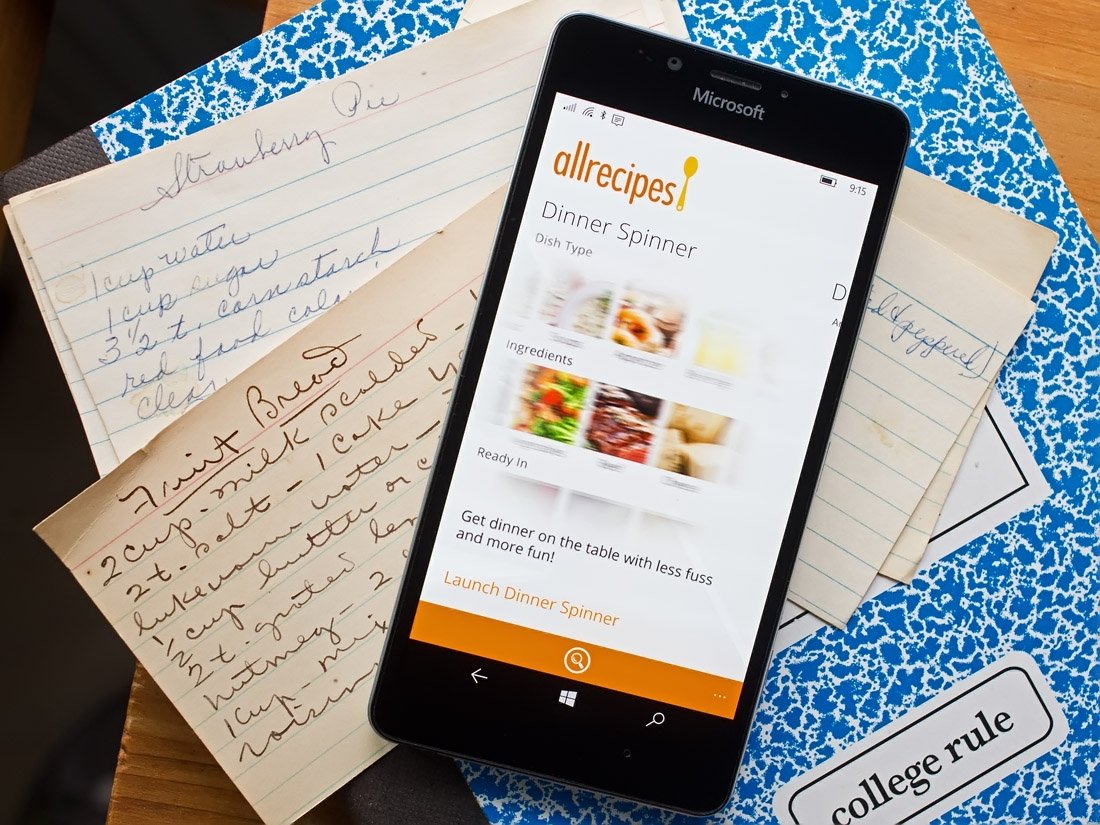 Strawberry Pie
1 cup water
1 cup sugar
3 1/2 t. corn starch
red food
Fruit Bread
2 cup. milk scalded -
2 t. salt - 1 cake
lukewarm water -
1/2 cup butter or
2 t. grated
nutmeg - 2
1 cup mix
Microsoft
9:15
allrecipes
Dinner Spinner
Dish Type
D
Ingredients
Ready In
Get dinner on the table with less fuss
and more fun!
Launch Dinner Spinner
college rule